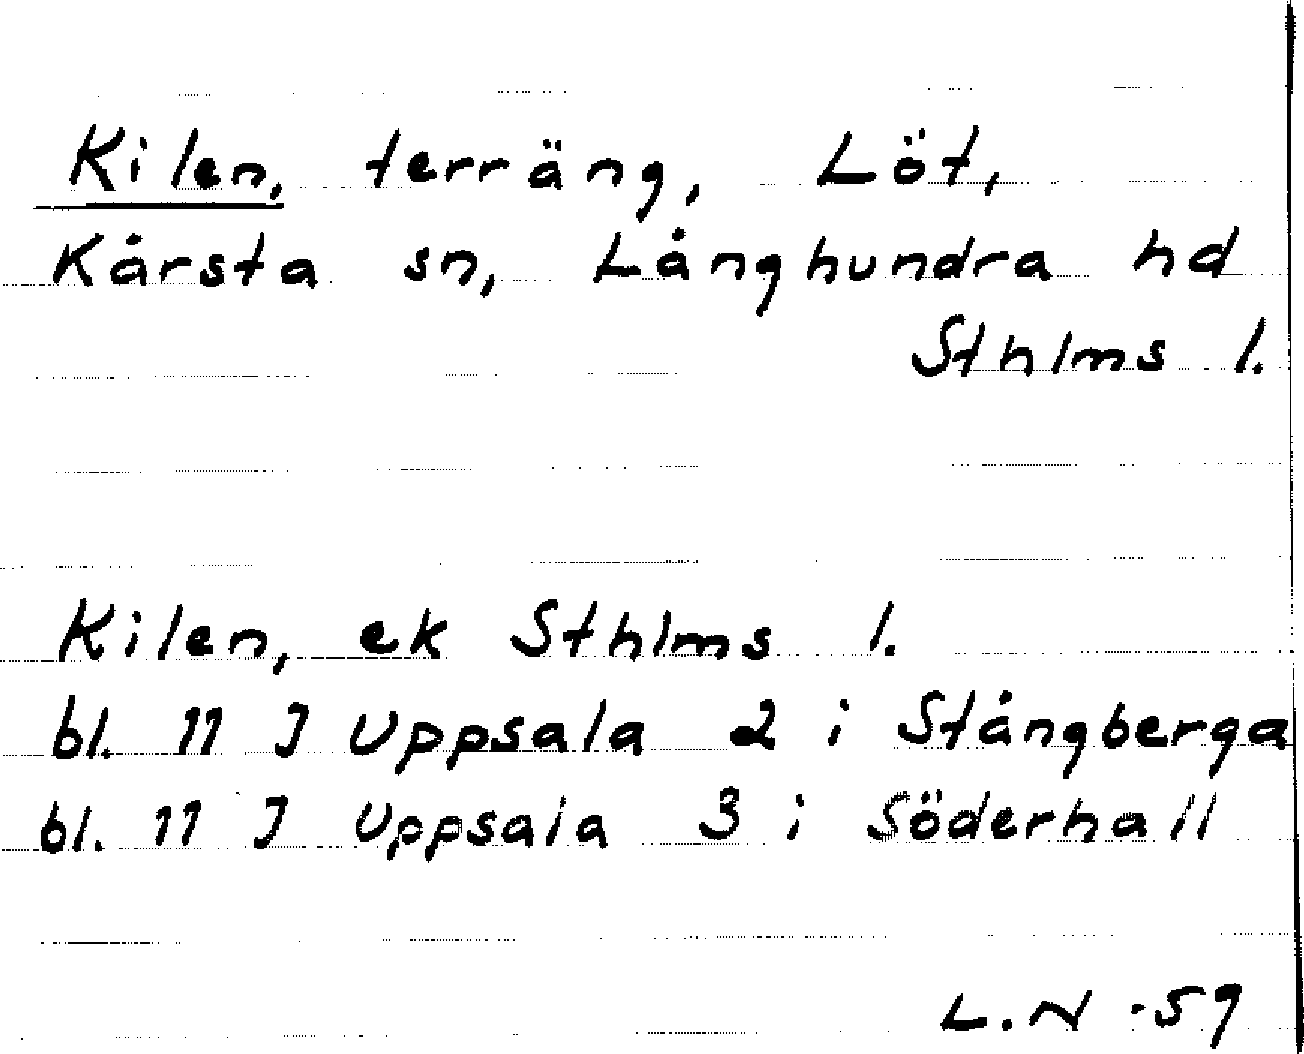 Kilen, terräng, Löt,
Kårsta sn, Långhundra hd
Sthlms l.
Kilen, ek Sthlms l.
bl. 11 J Uppsala 2 i Stångberga
bl. 11 J Uppsala 3 i Söderhall
L.N -59